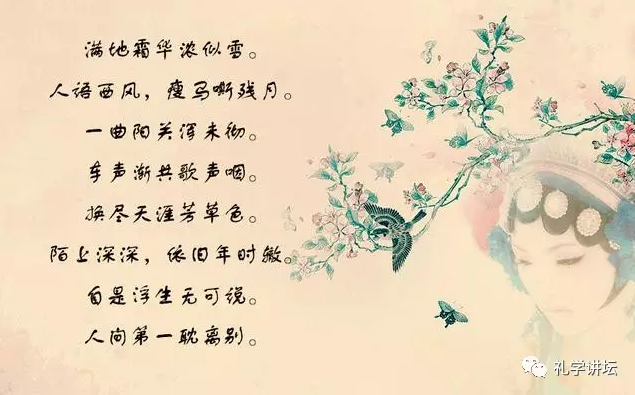 满地霜华浓似雪。
人语西风，瘦马嘶残月。
一曲阳关浑未彻。
车声渐共歌声咽。
换尽天涯芳草色。
陌上深深，依旧年时辙。
自是浮生无可说。
人间第一耽离别。
礼学讲坛